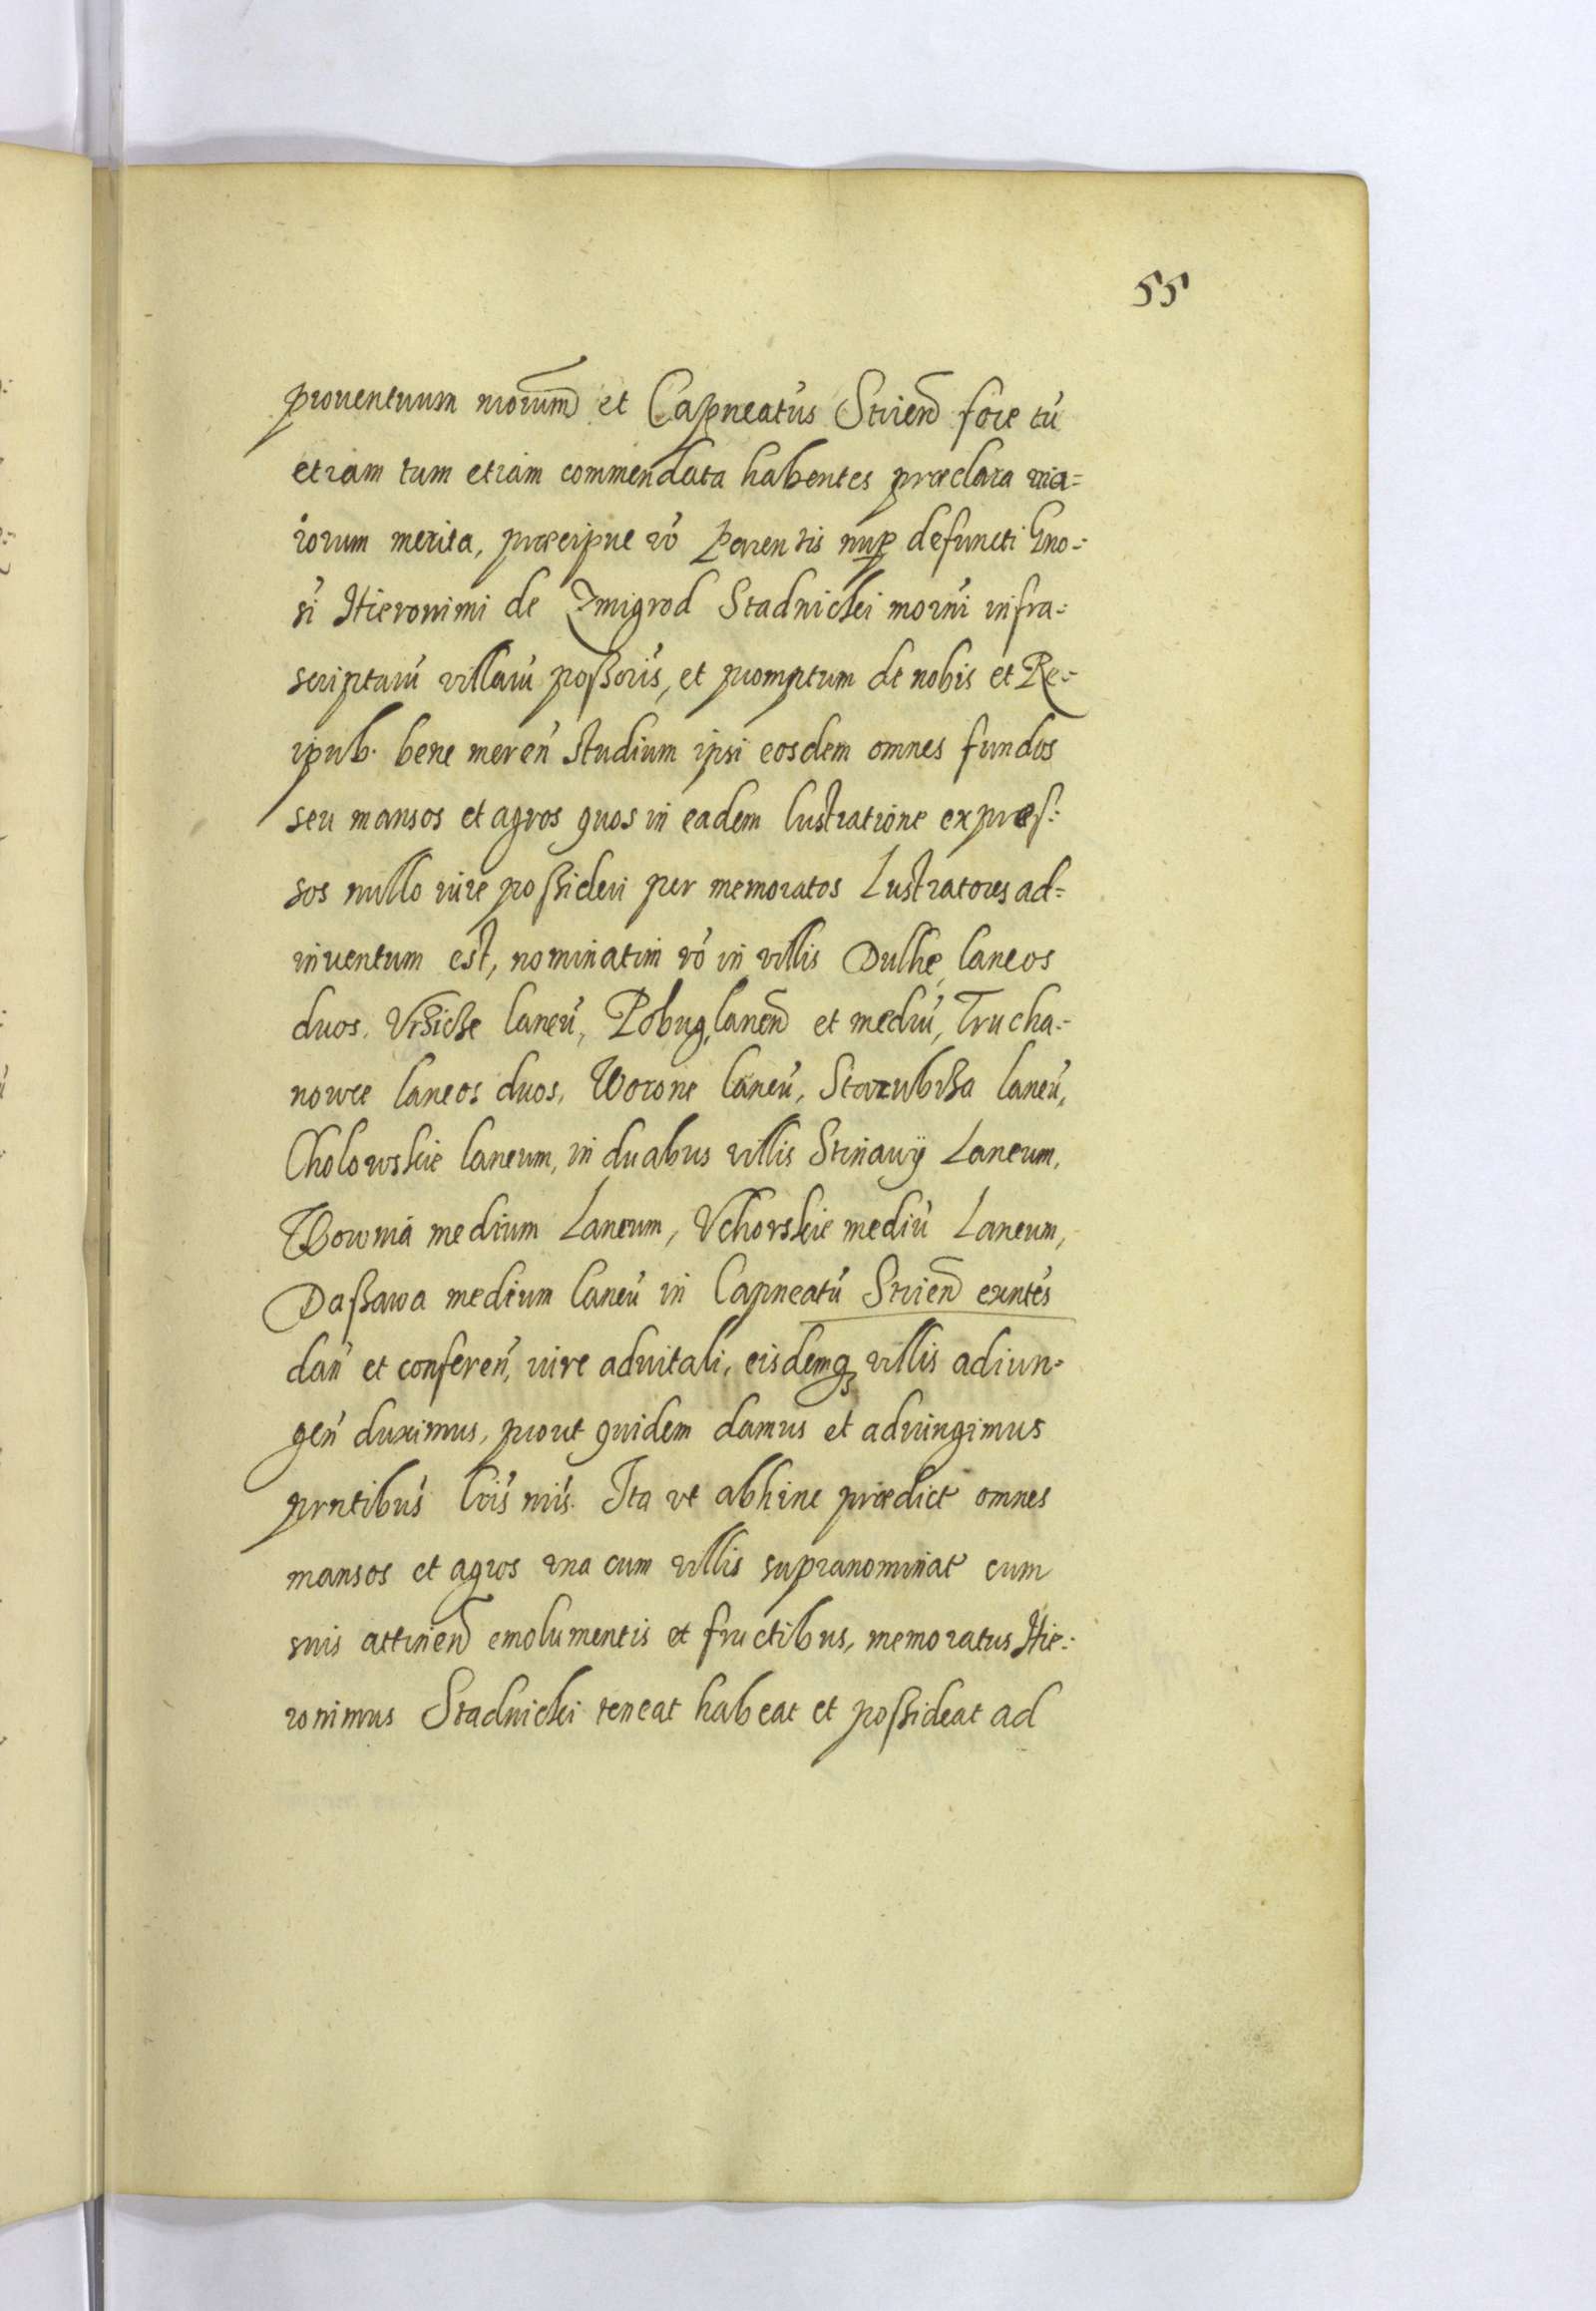 55
prouentuum nrorum et Capneatus Strien fore tu
etiam tum etiam commendata habentes præclara ma=
iorum merita, præcipue vo Parentis nup defuncti Gno=
si Hieronimi de Zmigrod Stadnicki morni infra=
scriptaru villaru possoris, et promptum de nobis et Re=
ipub. bene meren studium ipsi eosdem omnes fundos
seu mansos et agros quos in eadem lustratione expres=
sos nullo iure possideri per memoratos Lustratores ad=
inventum est, nominatim vo in villis Dulhe, laneos
duos, Vhicze laneu, Pobug, lanen et mediu, Trucha=
nowce laneos duos, Worone laneu, Starubiza laneu,
Cholowskie laneum, in duabus villis Stinawy Laneum,
Wownia medium Laneum, Vchorskie mediu Laneum,
Dassawa medium laneu in Capneatu Strien exntes
dan et conferen, iure aduitali, eisdemq villis adiun=
gen duximus, prout quidem damus et adiungimus
prntibus lris nris. Ita vt abhinc prædict omnes
mansos et agros vna cum villis supranominat cum
suis attinen emolumentis et fructibus, memoratus Hie=
ronimus Stadnicki teneat habeat et possideat ad